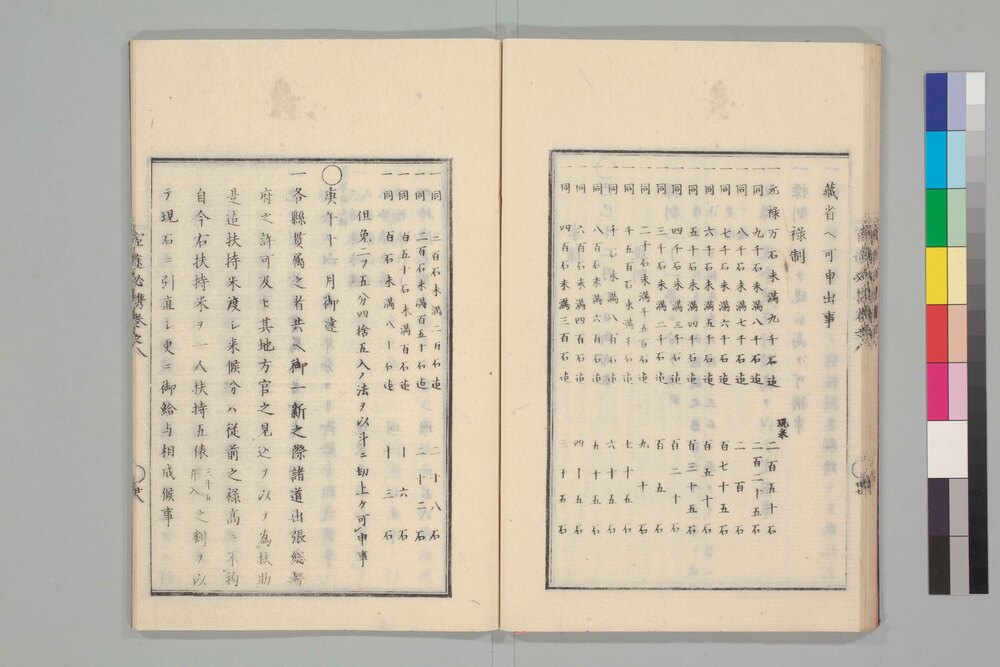 蔵省ヘ可申出事
禄制
一元禄万石未満九千石迠 現米 二百五十石
一同九千石未満八千石迠 二百二十五石
一同八千石未満七千石迠 二百石
一同七千石未満六千石迠 百七十五石
一同六千石未満五千石迠 百五十石
一同五千石未満四千石迠 百三十五石
一同四千石未満三千石迠 百二十石
一同三千石未満二千石迠 百五石
一同二千石未満千五百石迠 九十石
一同千五百石未満千石迠 七十五石
一同千石未満八百石迠 六十石
一同八百石未満六百石迠 五十五石
一同六百石未満四百石迠 四十五石
一同四百石未満三百石迠 三十五石
一同三百石未満二百石迠 二十八石
一同二百石未満百五十石迠 二十二石
一同百五十石未満百石迠 十六石
一同百石未満八十石迠 十三石
但免一ヲ五分四捨五入ノ法ヲ以斗ニ切上ケ可申事
○庚午十 月御達
一各縣貫属之者共ヘ御一新之際諸道出張総督
府之許可及ヒ其地方官之見込ヲ以テ為扶助
是迠扶持米渡シ来候分ハ従前之禄高ニ不拘
自今右扶持米ヲ一人扶持五俵 三斗五升入 之割ヲ以
テ現石ニ引直シ更ニ御給与相成候事